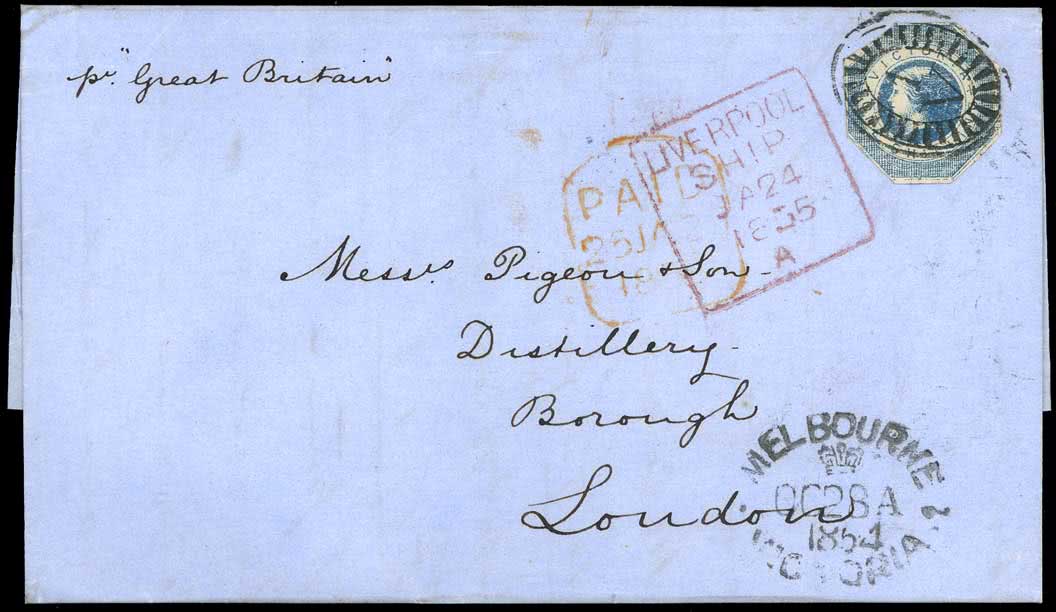 pr "Great Britain"
VICTORIA
LIVERPOOL
SHIP
JA24
1855
A
PAID
25JA
18
Messrs. Pigeon & Son
Distillery
Borough
London
MELBOURNE
OC28A
1854
VICTORIA